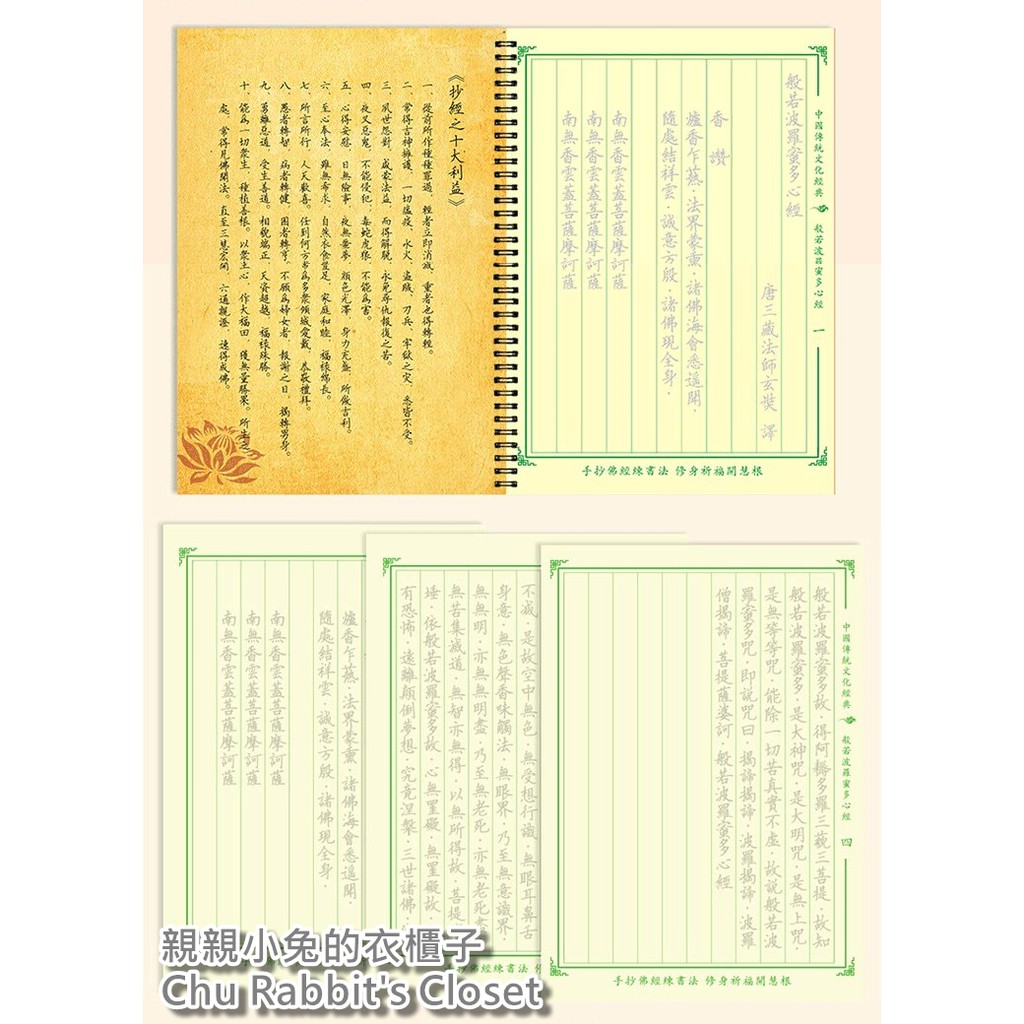 《抄經之十大利益》
一、從前所作種種罪過，輕者立即消滅，重者也得轉輕。
二、常得吉神擁護，一切瘟疫、水火、盜賊、刀兵、牢獄之灾，悉皆不受。
三、夙世怨對，咸蒙法益，而得解脱，永免尋仇報復之苦。
四、夜叉惡鬼，不能侵犯，毒蛇虎狼，不能為害。
五、心得安慰，日無險事，夜無噩夢，顏色光澤，身力充盛，所做吉利。
六、至心奉法，雖無希求，自然衣食豐足，家庭和睦，福禄綿長。
七、所言所行，人天歡喜。任到何方常為多衆傾城愛戴，恭敬禮拜。
八、愚者轉智，病者轉健，困者轉亨。不願為婦女者，報謝之日，捐轉男身。
九、勇離惡道，受生善道。相貌端正，天資超越，福禄殊勝。
十、能為一切衆生，種植善根。以衆生心，作大福田，獲無量勝果。所生之
處，常得見佛聞法。直至三慧宏開，六通親證，速得成佛。
中國傳統文化經典 般若波羅蜜多心經 一
般若波羅蜜多心經
唐三藏法師玄奘 譯
香讚
爐香乍爇·法界蒙熏·諸佛海會悉遥聞·
隨處結祥雲·誠意方殷·諸佛現全身·
南無香雲蓋菩薩摩訶薩
南無香雲蓋菩薩摩訶薩
南無香雲蓋菩薩摩訶薩
手抄佛經練書法 修身祈福開慧根
爐香乍爇·法界蒙熏·諸佛海會悉遥聞·
隨處結祥雲·誠意方殷·諸佛現全身·
南無香雲蓋菩薩摩訶薩
南無香雲蓋菩薩摩訶薩
南無香雲蓋菩薩摩訶薩
不減·是故空中無色·無受想行識·無眼耳鼻舌
身意·無色聲香味觸法·無眼界·乃至無意識界·
無無明·亦無無明盡·乃至無老死·亦無老死盡
無苦集滅道·無智亦無得·以無所得故·菩提
埵·依般若波羅蜜多故·心無罣礙·無罣礙故·
有恐怖·遠離顛倒夢想·究竟涅槃·三世諸佛·
佛經練書法
中國傳統文化經典 般若波羅蜜多心經 四
般若波羅蜜多故·得阿耨多羅三藐三菩提·故知
般若波羅蜜多·是大神咒·是大明咒·是無上咒·
是無等等咒·能除一切苦真實不虛·故説般若波
羅蜜多咒·即説咒曰·揭諦揭諦·波羅揭諦·波羅
僧揭諦·菩提薩婆訶·般若波羅蜜多心經
手抄佛經練書法 修身祈福開慧根
親親小兔的衣櫃子
Chu Rabbit's Closet